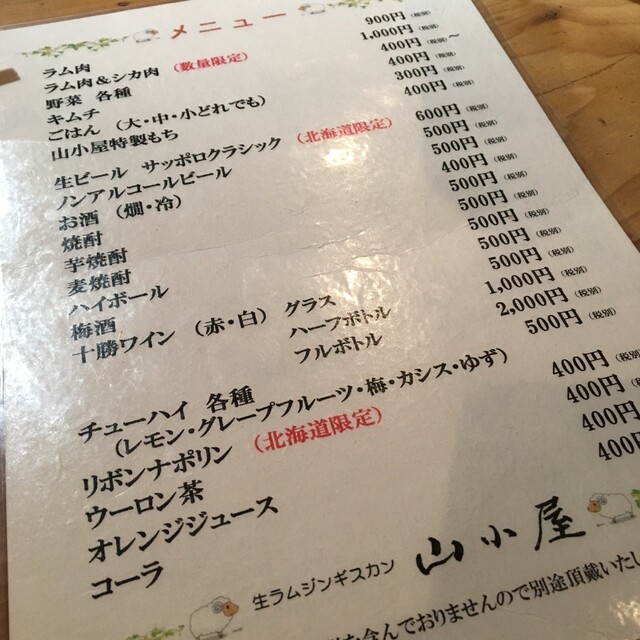 メニュー
ラム肉 900円(税別)
ラム肉&シカ肉 (数量限定) 1,000円(税別)
野菜 各種 400円(税別)~
キムチ 400円(税別)
ごはん (大・中・小どれでも) 300円(税別)
山小屋特製もち 400円(税別)
生ビール サッポロクラシック (北海道限定) 600円(税別)
ノンアルコールビール 500円(税別)
お酒 (燗・冷) 500円(税別)
焼酎 400円(税別)
芋焼酎 500円(税別)
麦焼酎 500円(税別)
ハイボール 500円(税別)
梅酒 500円(税別)
十勝ワイン (赤・白) グラス 500円(税別)
ハーフボトル 1,000円(税別)
フルボトル 2,000円(税別)
チューハイ 各種 500円(税別)
(レモン・グレープフルーツ・梅・カシス・ゆず)
リボンナポリン (北海道限定) 400円(税別)
ウーロン茶 400円(税別)
オレンジジュース 400円(税別)
コーラ 400円
生ラムジンギスカン 山小屋
を含んでおりませんので別途頂戴いたし